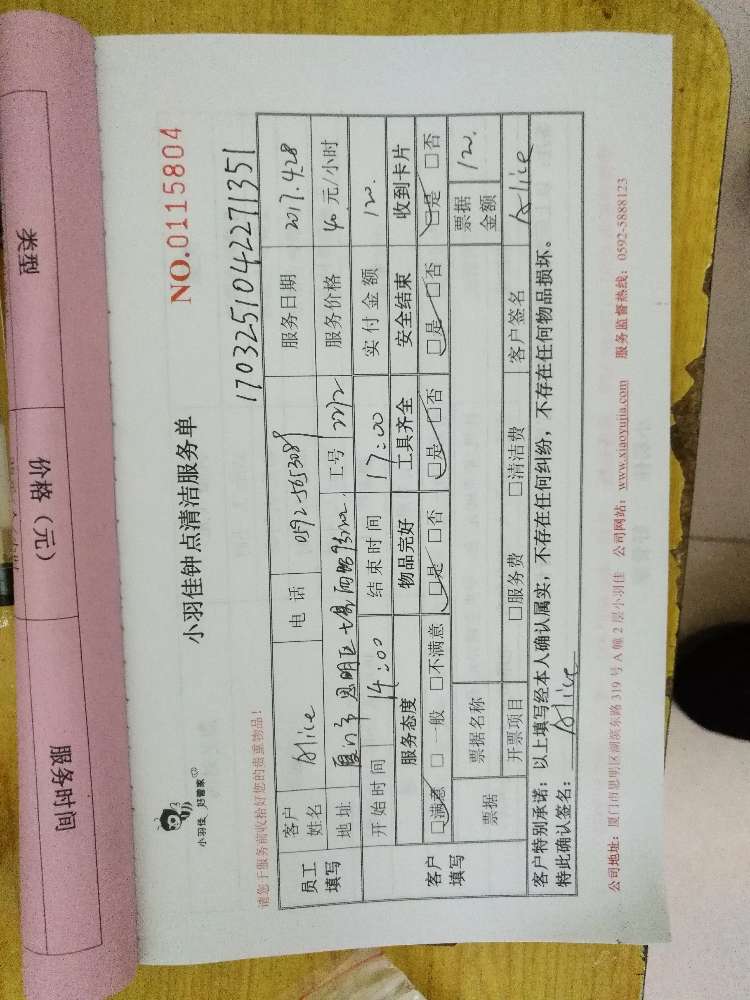 类型
价格（元）
服务时间
小羽佳 好管家
小羽佳钟点清洁服务单
NO.0115804
1703251042271351
请您于服务前收拾好您的贵重物品！
员工填写 客户姓名 Alice 电话 服务日期 2017.4.28
地址 厦门市思明区 工号 2212 服务价格 40 元/小时
开始时间 14:00 结束时间 17:00 实付金额 120.
客户填写 服务态度 物品完好 工具齐全 安全结束 收到卡片
□满意 □一般 □不满意 □是 □否 □是 □否 □是 □否 □是 □否
票据 票据名称 票据金额 120.
开票项目 □服务费 □清洁费 客户签名 Alice
客户特别承诺：以上填写经本人确认属实，不存在任何纠纷，不存在任何物品损坏。
特此确认签名： Alice
公司地址：厦门市思明区湖滨东路 319 号 A 幢 2 层小羽佳 公司网站：www.xiaoyujia.com 服务监督热线：0592-5888123